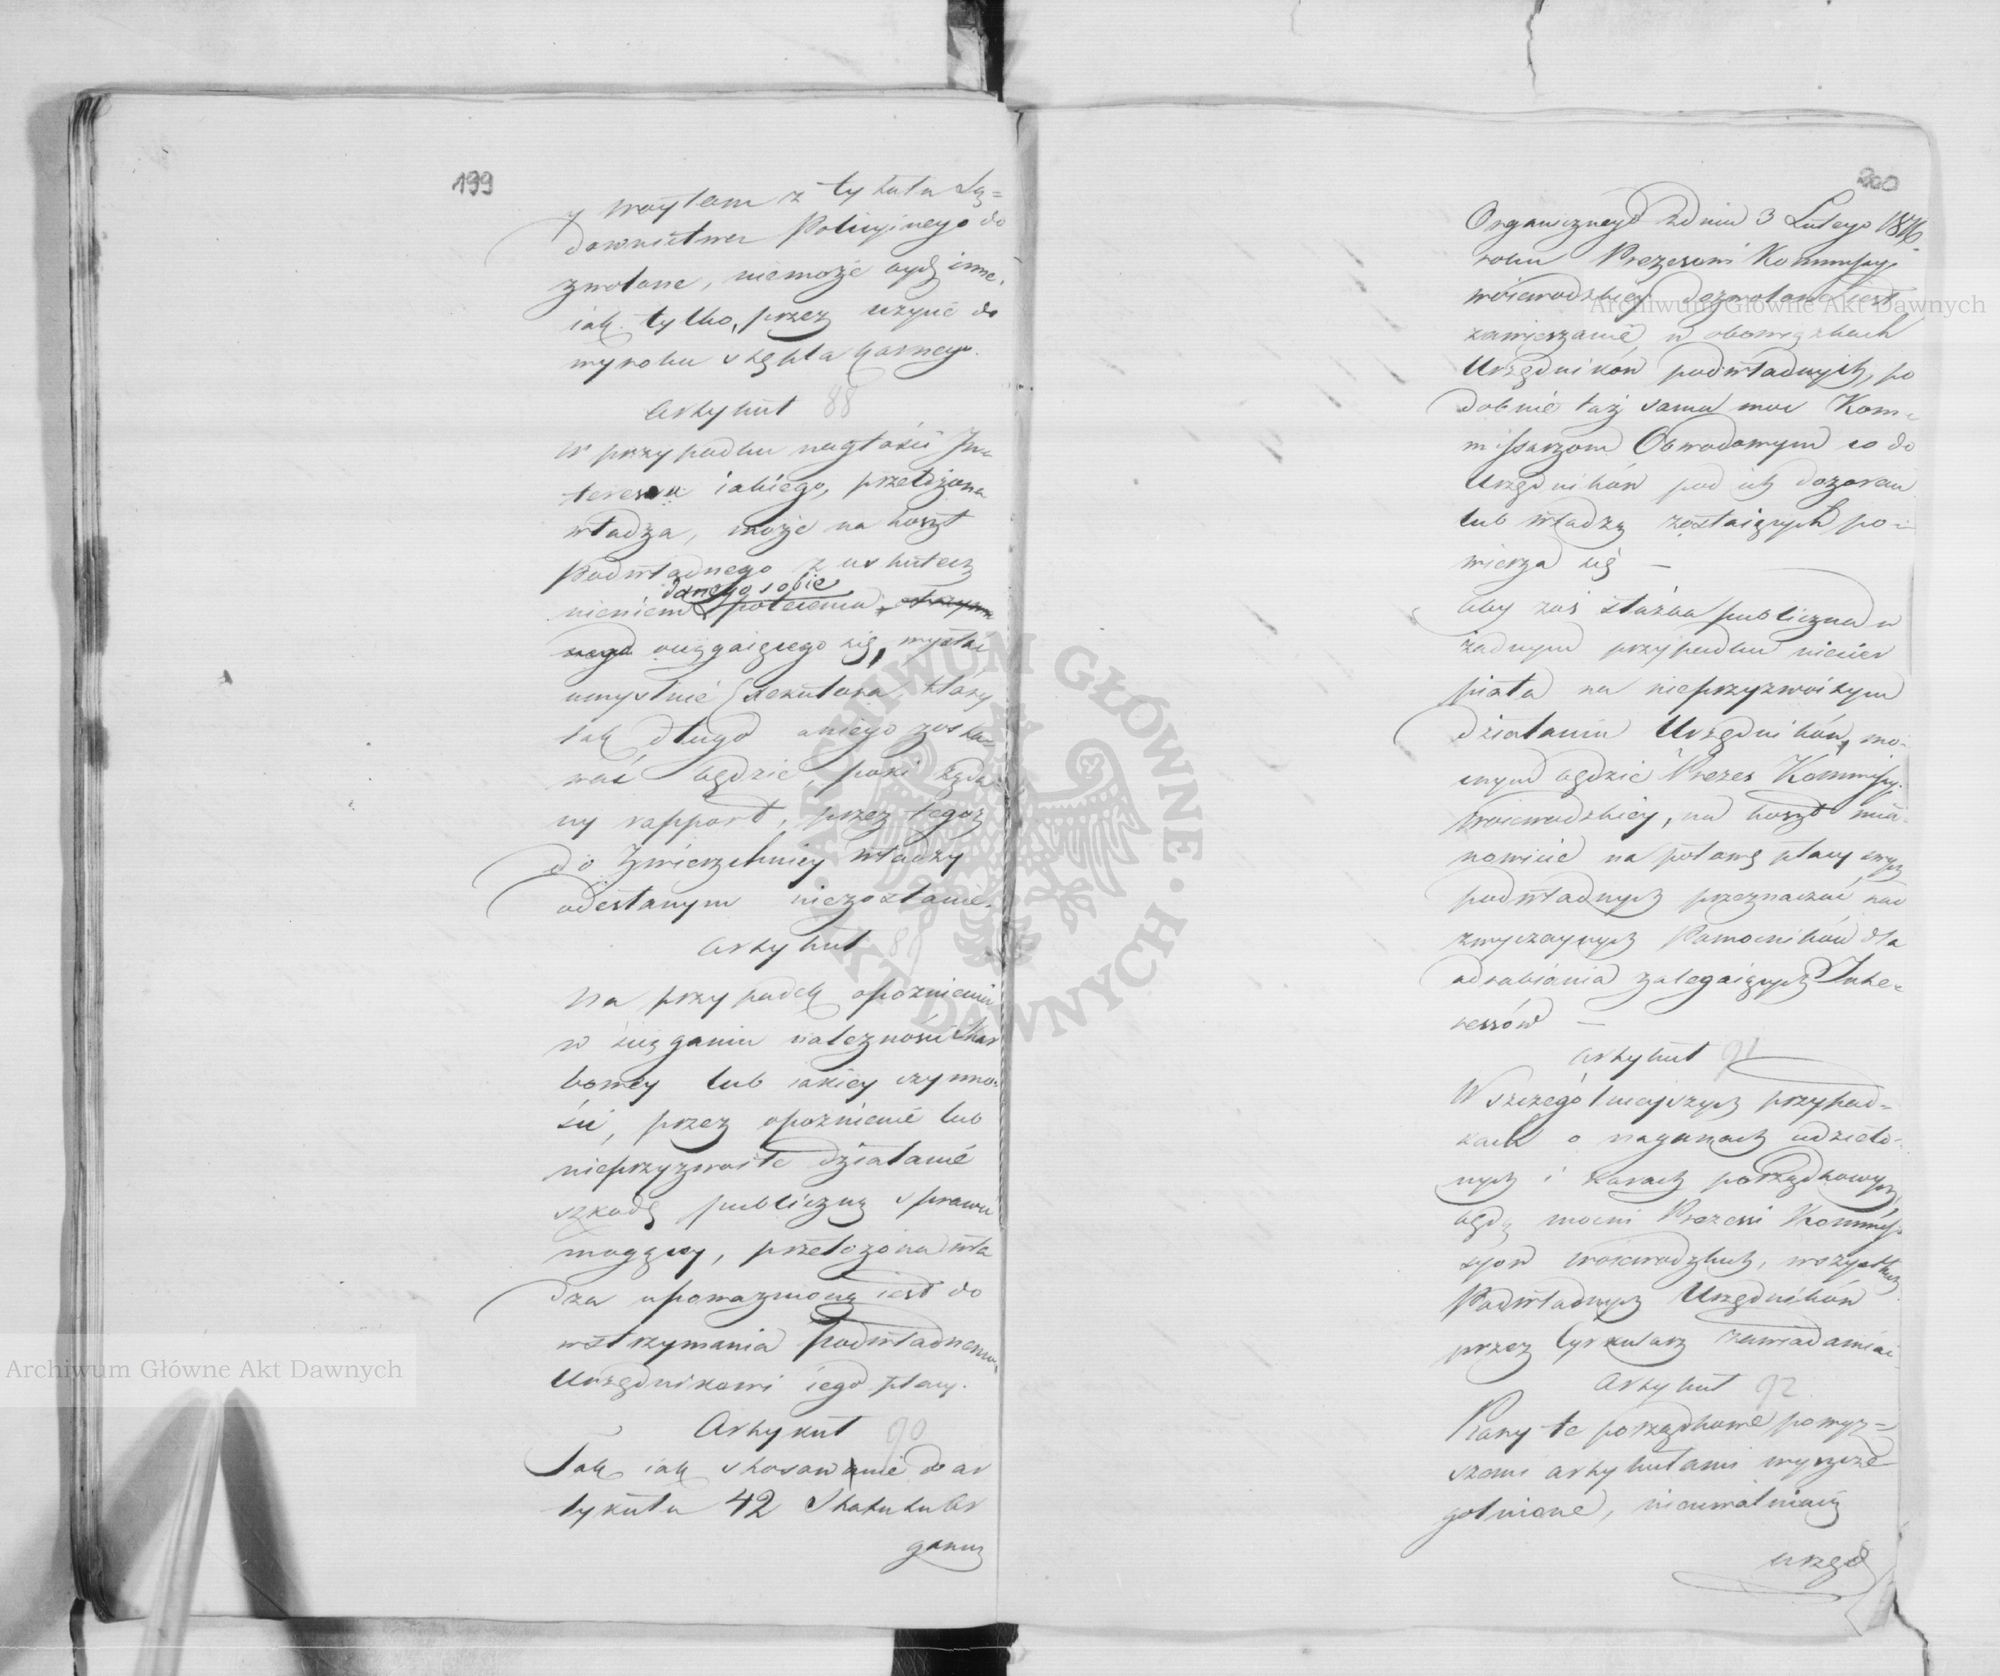 199
y Woytom z tytułu Są=
downictwa Policyinego do
zwolone, niemoże bydź inne,
iak tylko, przez użycie do
wyroku stępla karnego.
Artykuł 88
W przypadku nagłości In-
teressu iakiego, przełożona
władza, może na koszt
Podwładnego z uskutecz
nieniem danego sobie polecenia,
ociągaiącego się, wysłać
umyślnie Exekutora, który
tak długo u niego zosta-
wać będzie, poki żąda-
ny rapport, przez tegoż
do Zwierzchniey władzy
odesłanym niezostanie.
Artykuł 89
Na przypadek opoznienia
w ściąganiu należności Skar
bowey lub iakiey czynno-
ści, przez opoznienie lub
nieprzyzwoite działanie
szkodę publiczną sprawić
mogącey, przełożona wła
dza upoważnioną iest do
wstrzymania podwładnemu
Urzędnikowi iego płacy.
Artykuł 90
Tak iak stosownie do ar
tykułu 42 Statutu Or
ganicz
200
Organicznego z dnia 3 Lutego 1816.
roku Prezesowi Kommissyi
Woiewodzkiey dozwolone iest
zawieszanie w obowiązkach
Urzędników podwładnych, po
dobnie taż sama moc Kom-
missarzom Obwodowym co do
Urzędników pod ich dozorem
lub władzą zostaiących po-
wierza się —
Aby zaś służba publiczna w
żadnym przypadku niecier
piała na nieprzyzwoitym
działaniu Urzędników, mo-
cnym będzie Prezes Kommissyi
Woiewodzkiey, na koszt mia-
nowicie na połowę płacy swych
podwładnych przeznaczać nad
zwyczaynych Pomocników dla
odrabiania zalegaiących Inte-
ressów —
Artykuł 91
W szczególnieyszych przypad-
kach o naganach udzielo-
nych i karach porządkowych
będą mocni Prezesi Kommis-
syow Woiewodzkich, wszystkich
Podwładnych Urzędników
przez Cyrkularz zawiadamiać.
Artykuł 92.
Kary te porządkowe powyż=
szemi artykułami wyszcze
gólnione, nieuwalniaią
urzęd
Archiwum Główne Akt Dawnych
Archiwum Główne Akt Dawnych
ARCHIWUM GŁÓWNE · AKT DAWNYCH ·